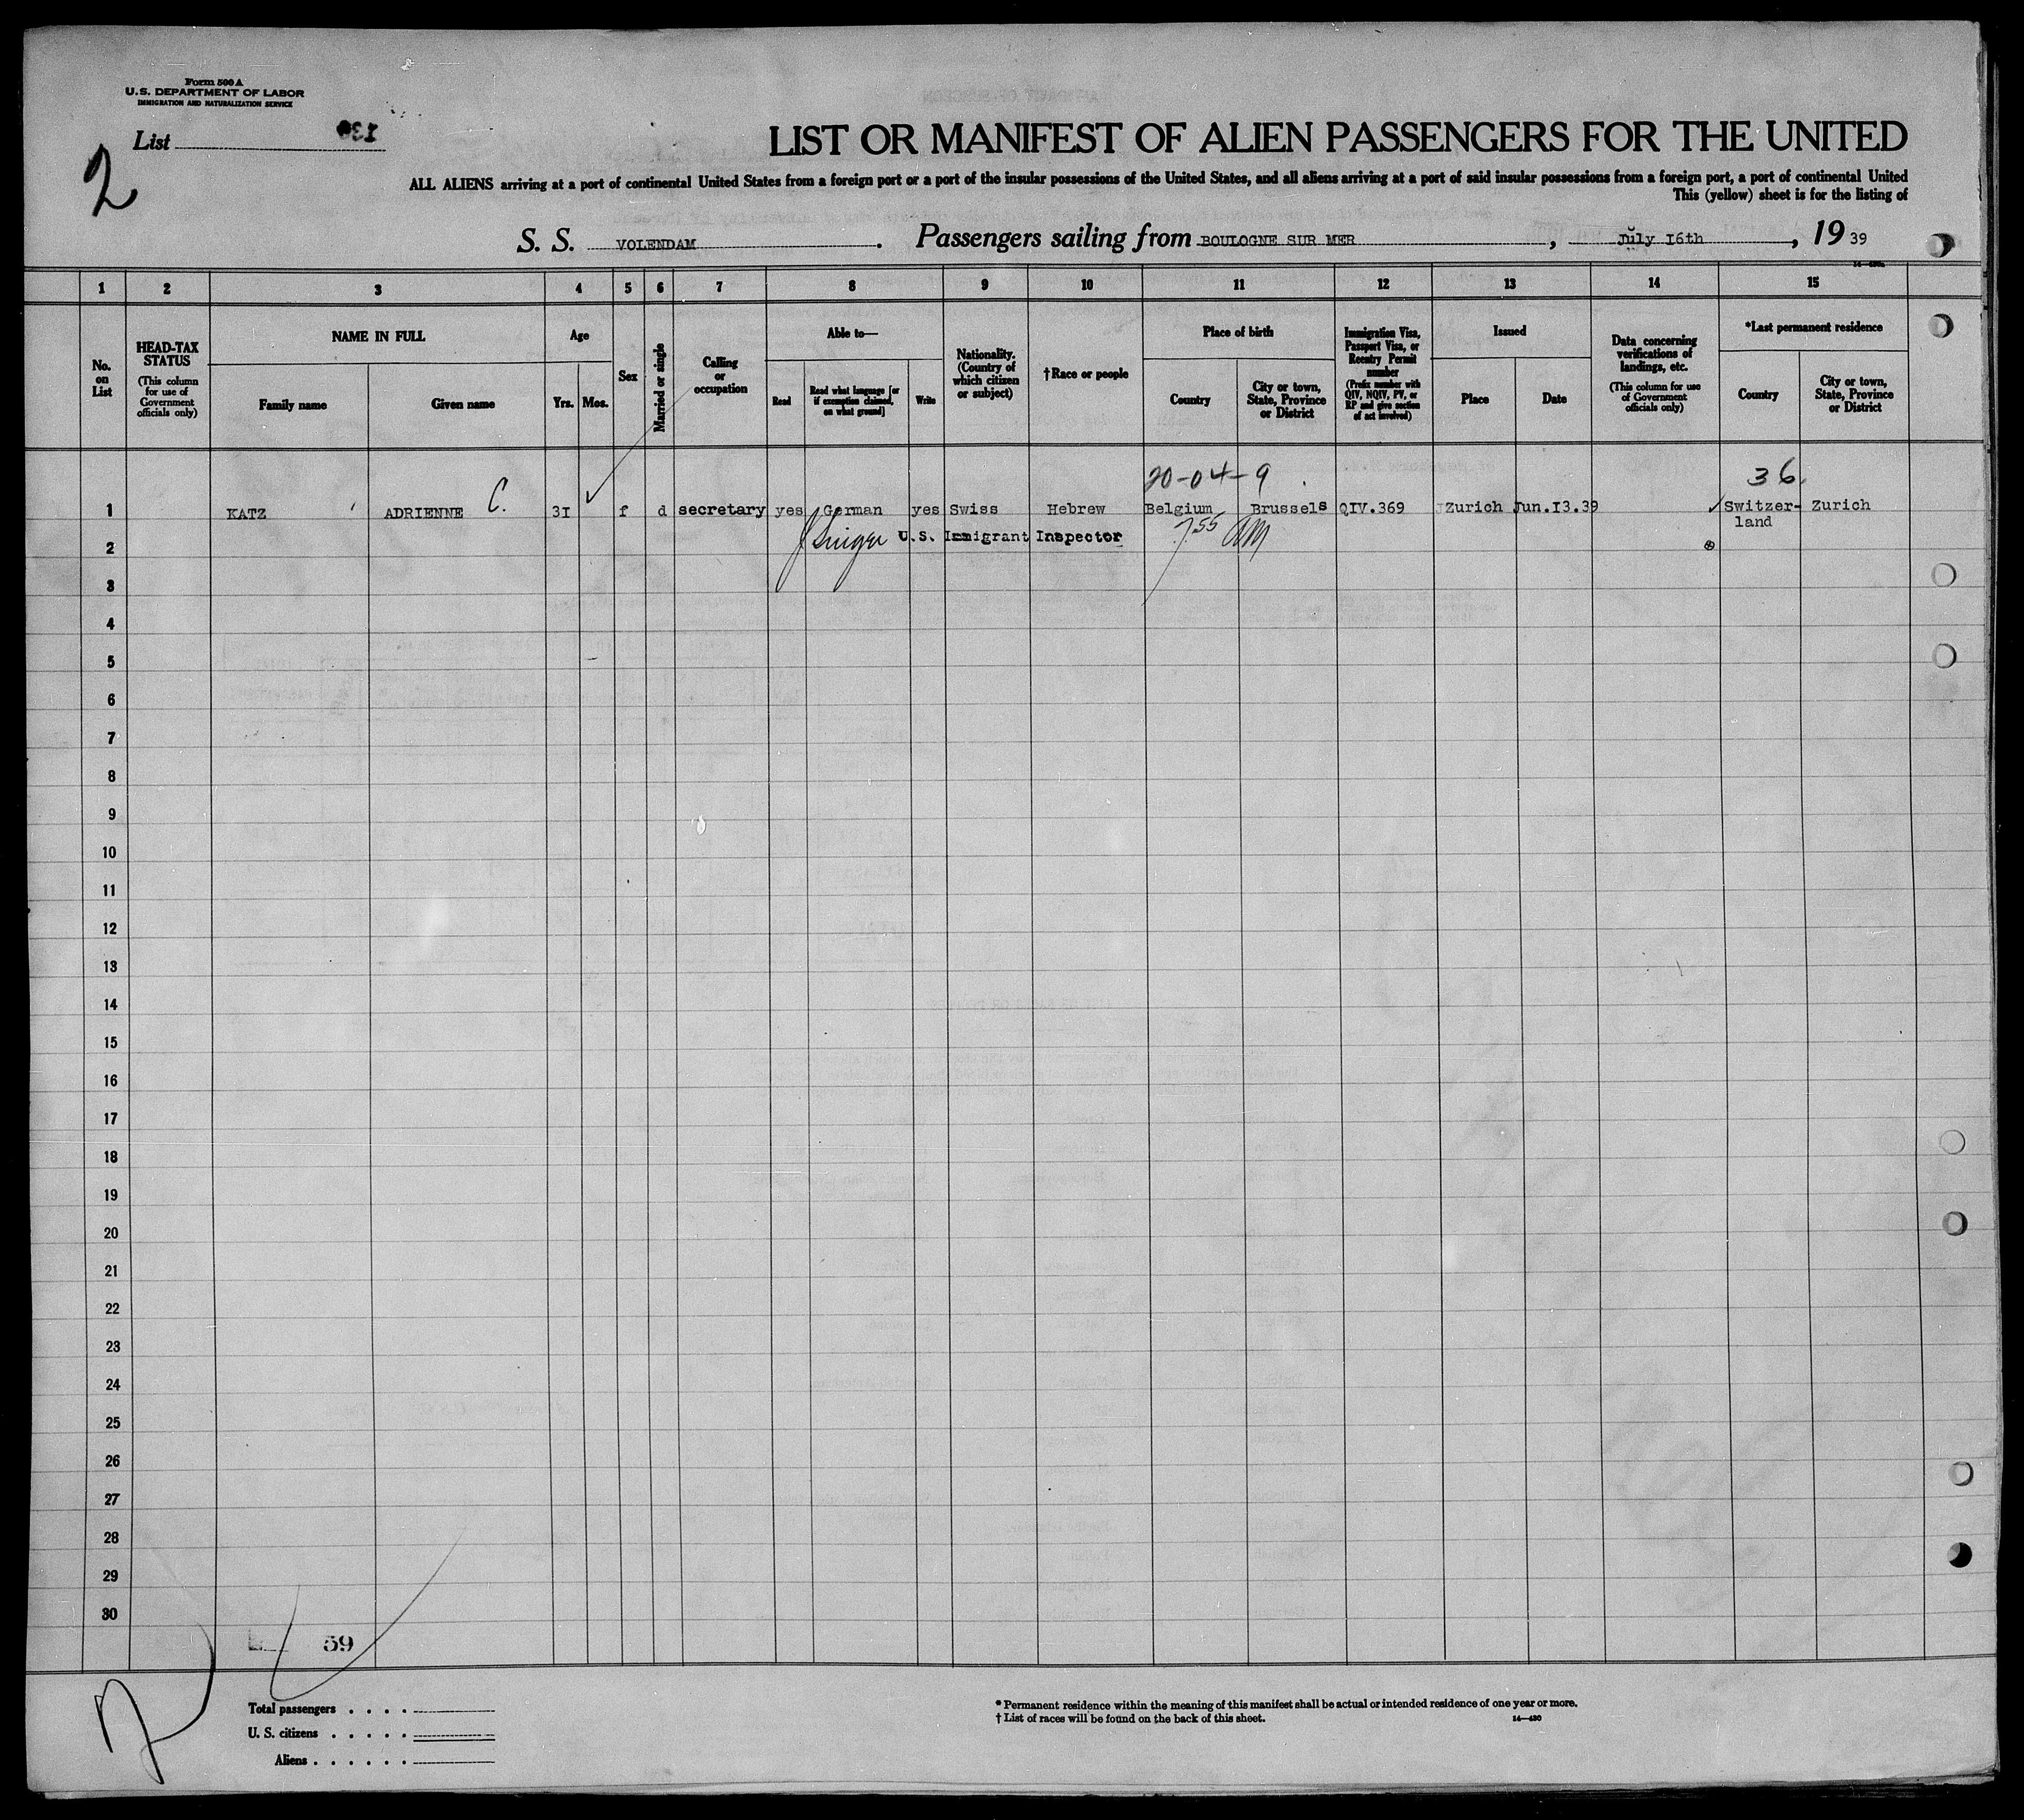 Form 500 A
U. S. DEPARTMENT OF LABOR
IMMIGRATION AND NATURALIZATION SERVICE
List
2
LIST OR MANIFEST OF ALIEN PASSENGERS FOR THE UNITED
ALL ALIENS arriving at a port of continental United States from a foreign port or a port of the insular possessions of the United States, and all aliens arriving at a port of said insular possessions from a foreign port, a port of continental United
This (yellow) sheet is for the listing of
S. S. VOLENDAM. Passengers sailing from BOULOGNE SUR MER, July 16th, 19 39
1 2 3 4 5 6 7 8 9 10 11 12 13 14 15
No. on List
HEAD-TAX STATUS (This column for use of Government officials only)
NAME IN FULL
Family name
Given name
Age
Yrs. Mos.
Sex
Married or single
Calling or occupation
Able to—
Read
Read what language [or if exemption claimed, on what ground]
Write
Nationality. (Country of which citizen or subject)
†Race or people
Place of birth
Country
City or town, State, Province or District
Immigration Visa, Passport Visa, or Reentry Permit number (Prefix number with QIV, NQIV, PV, or RP and give section of act involved)
Issued
Place
Date
Data concerning verifications of landings, etc. (This column for use of Government officials only)
*Last permanent residence
Country
City or town, State, Province or District
20-04-9 36
1 KATZ ADRIENNE C. 31 f d secretary yes German yes Swiss Hebrew Belgium Brussels QIV.369 Zurich Jun.13.39 Switzer-land Zurich
2 U.S. Immigrant Inspector 755 AM
3
4
5
6
7
8
9
10
11
12
13
14
15
16
17
18
19
20
21
22
23
24
25
26
27
28
29
30
59
2
Total passengers . . . .
U. S. citizens . . . . .
Aliens . . . . . .
* Permanent residence within the meaning of this manifest shall be actual or intended residence of one year or more.
† List of races will be found on the back of this sheet.
14—430